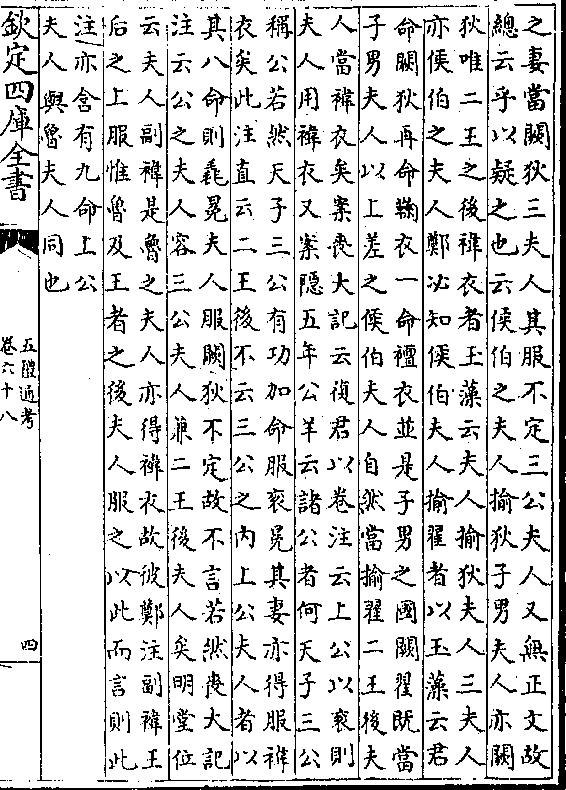 之妻當闕狄三夫人其服不定三公夫人又無正文故
總云乎以疑之也云侯伯之夫人揄狄子男夫人亦闕
狄唯二王之後褘衣者玉藻云夫人揄狄夫人三夫人
亦侯伯之夫人鄭必知侯伯夫人揄翟者以玉藻云君
命闕狄再命鞠衣一命襢衣並是子男之國闕翟既當
子男夫人以上差之侯伯夫人自然當揄翟二王後夫
人當褘衣矣案喪大記云復君以卷注云上公以衮則
夫人用褘衣又案隱五年公羊云諸公者何天子三公
稱公若然天子三公有功加命服衮冕其妻亦得服褘
衣矣此注直云二王後不云三公之內上公夫人者以
其八命則毳冕夫人服闕狄不定故不言若然喪大記
注云公之夫人容三公夫人兼二王後夫人矣明堂位
云夫人副褘是魯之夫人亦得褘衣故彼鄭注副褘王
后之上服惟魯及王者之後夫人服之以此而言則此
注亦含有九命上公
夫人與魯夫人同也
欽定四庫全書
五禮通考
卷六十八
四